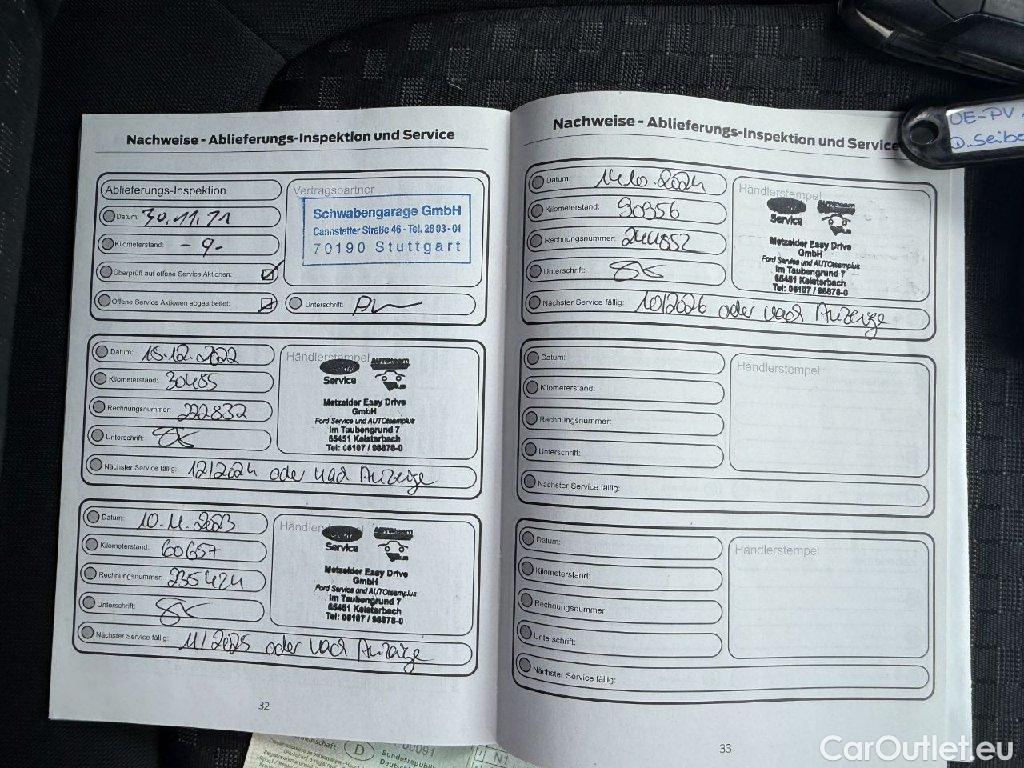 Nachweise - Ablieferungs-Inspektion und Service
Ablieferungs-Inspektion
Datum: 30.11.21
Kilometerstand: - 9 -
Überprüft auf offene Service Aktionen:
Offene Service Aktionen abgearbeitet:
Unterschrift:
Vertragspartner
Schwabengarage GmbH
Cannstatter Straße 46 - Tel. 28 03 - 01
70190 Stuttgart
Datum: 15.12.2022
Kilometerstand: 30485
Rechnungsnummer: 222832
Unterschrift:
Nächster Service fällig: 12/2024 oder nach Anzeige
Händlerstempel
Service
Metzelder Easy Drive
GmbH
Ford Service und AUTOteamplus
Im Taubengrund 7
65451 Kelsterbach
Tel: 06107 / 98878-0
Datum: 10.11.2023
Kilometerstand: 60657
Rechnungsnummer: 235424
Unterschrift:
Nächster Service fällig: 11/2025 oder nach Anzeige
Service
Metzelder Easy Drive
GmbH
Ford Service und AUTOteamplus
Im Taubengrund 7
65451 Kelsterbach
Tel: 06107 / 98878-0
32
Nachweise - Ablieferungs-Inspektion und Service
Datum:
Kilometerstand: 90956
Rechnungsnummer: 244852
Unterschrift:
Nächster Service fällig: 10/2026 oder nach Anzeige
Händlerstempel
Service
Metzelder Easy Drive
GmbH
Ford Service und AUTOteamplus
Im Taubengrund 7
65451 Kelsterbach
Tel: 06107 / 98878-0
Datum:
Kilometerstand:
Rechnungsnummer:
Unterschrift:
Nächster Service fällig:
Händlerstempel
Datum:
Kilometerstand:
Rechnungsnummer:
Unterschrift:
Nächster Service fällig:
Händlerstempel
33
OE-PV
D. Seib
D
N1
CarOutlet.eu